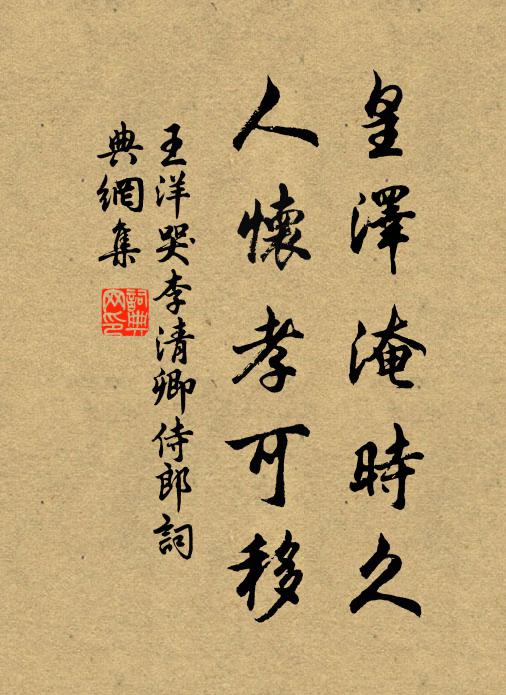 皇澤淹時久
人懷孝可移
王洋哭李清卿侍郎詞
典網集
詞典
网印